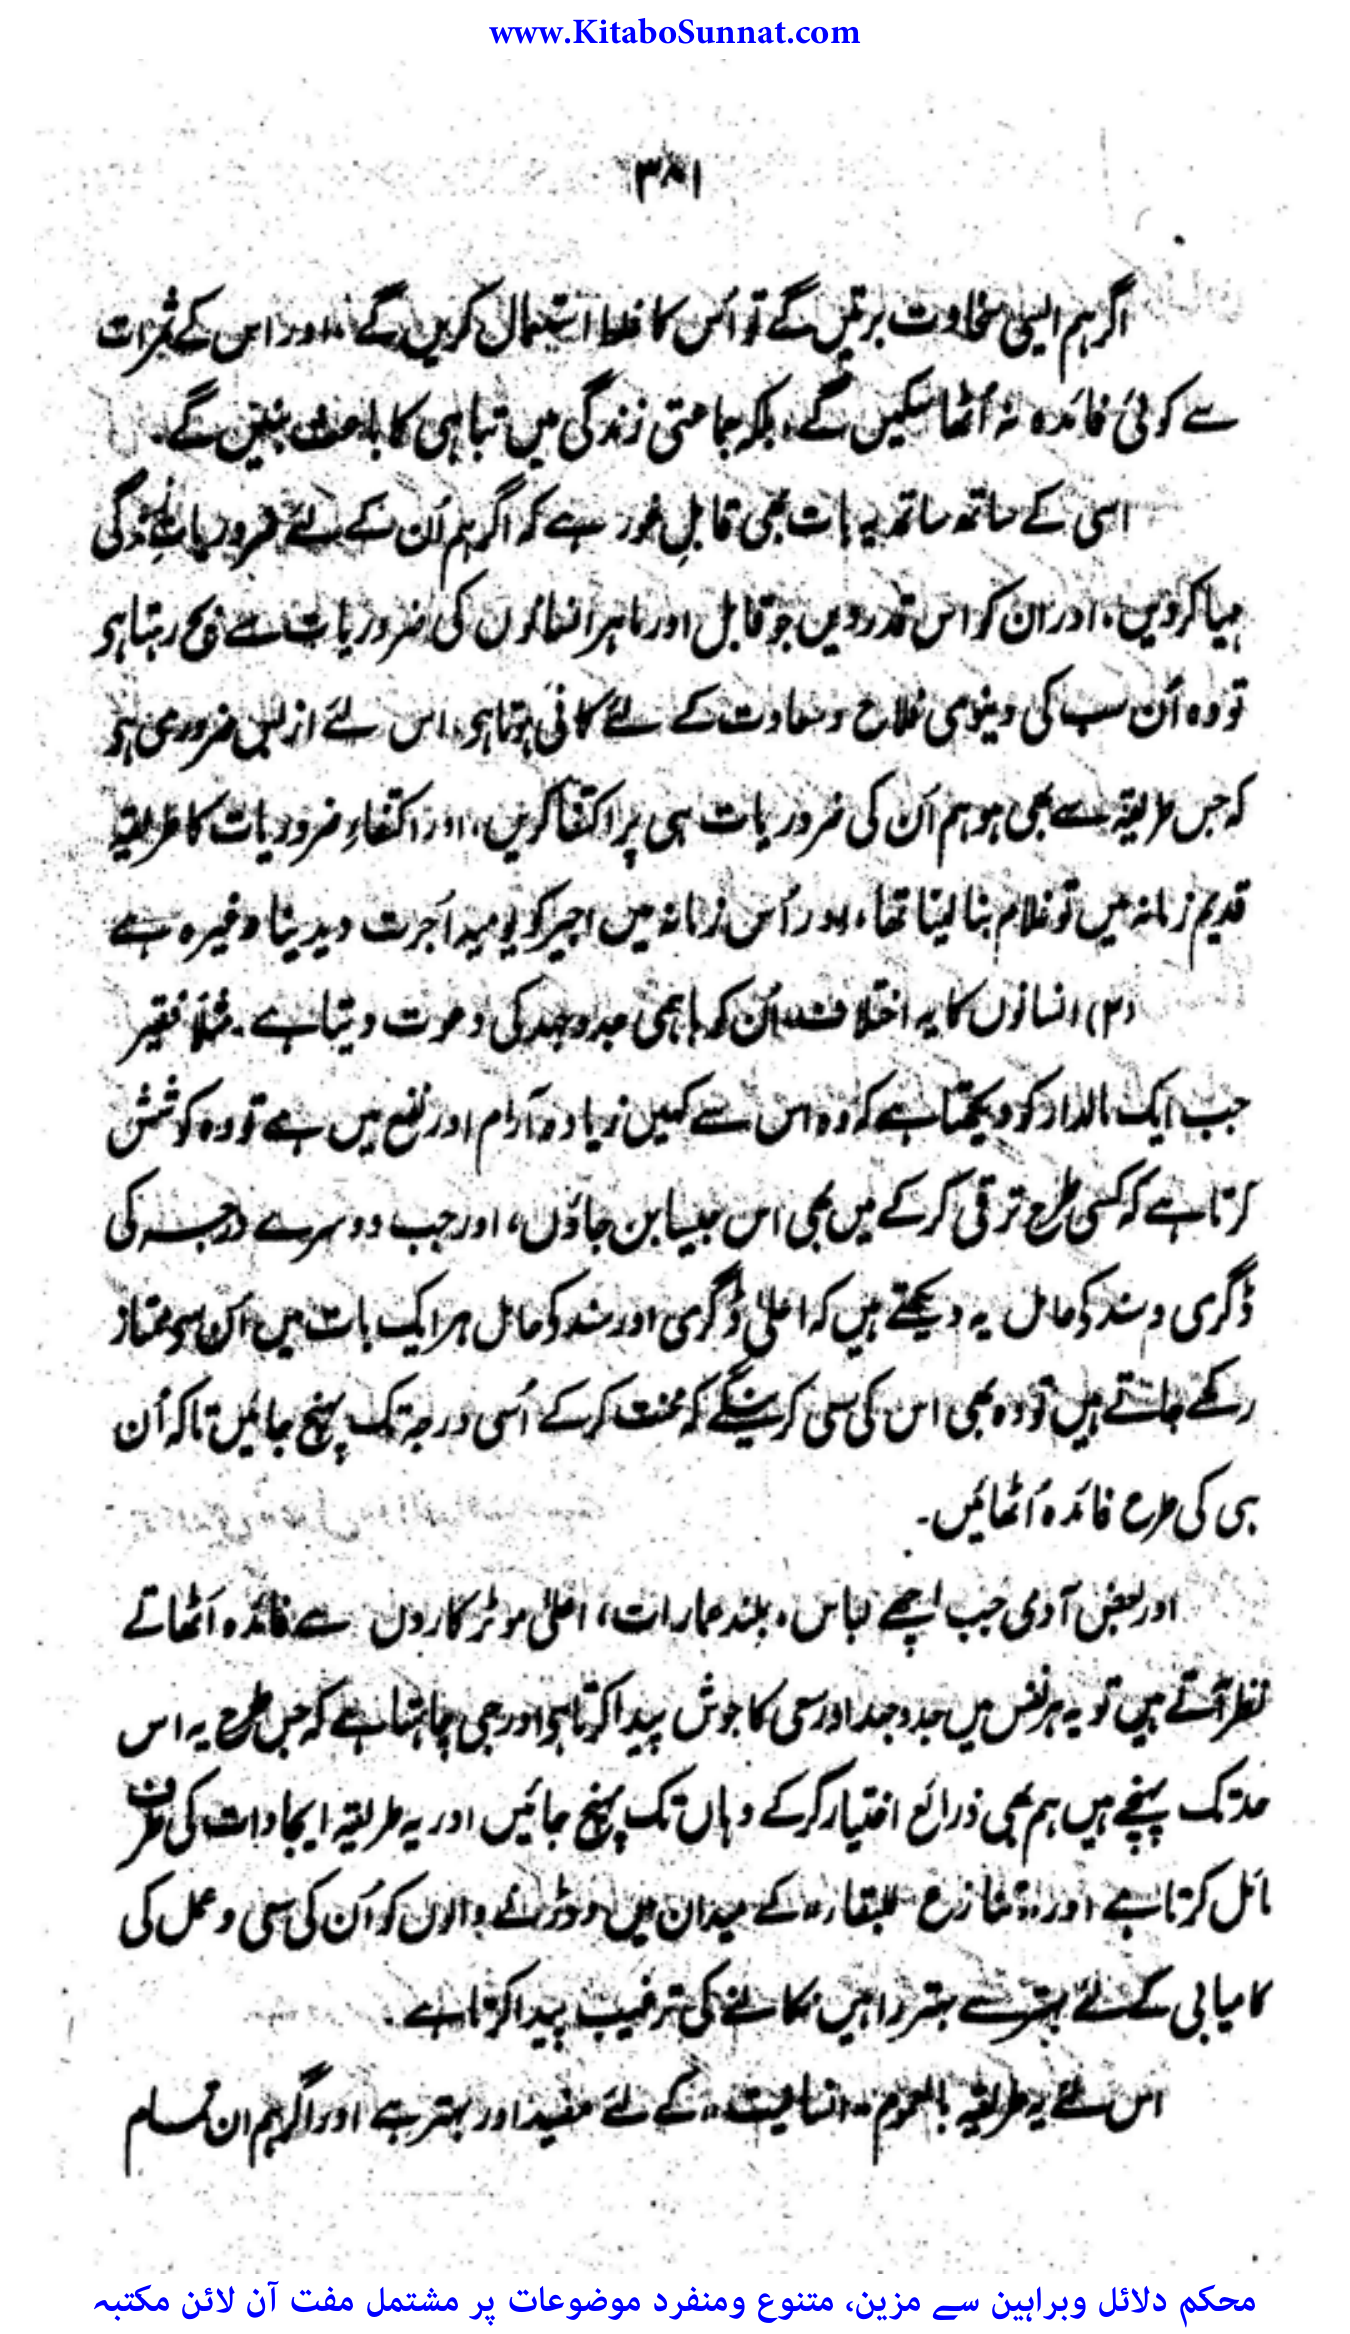 www.KitaboSunnat.com
۳۸۱
اگر ہم ایسی سخاوت برتیں گے تو اُس کا غلط استعمال کریں گے، اور اس کے ثمرات
سے کوئی فائدہ نہ اُٹھا سکیں گے، بلکہ جماعتی زندگی میں تباہی کا باعث بنیں گے۔
اسی کے ساتھ ساتھ یہ بات بھی قابلِ غور ہے کہ اگر ہم اُن کے لئے ضروریاتِ زندگی
مہیا کردیں، اور ان کو اس قدر دیں جو قابل اور ماہر انسانوں کی ضروریات سے بچ رہتا ہی
تو وہ اُن سب کی دینوی فلاح و سعادت کے لئے کافی ہوتا ہی، اس لئے از بس ضروری ہی
کہ جس طریقہ سے بھی ہو ہم اُن کی ضروریات ہی پر اکتفا کریں، اور اکتفاءِ ضروریات کا طریقہ
قدیم زمانہ میں تو غلام بنا لینا تھا، اور اُس زمانہ میں اجیر کو یومیہ اُجرت دیدینا وغیرہ ہے
(۲) انسانوں کا یہ اختلاف اُن کو باہمی جدوجہد کی دعوت دیتا ہے۔ مثلاً فقیر
جب ایک مالدار کو دیکھتا ہے کہ وہ اس سے کہیں زیادہ آرام اور نفع میں ہے تو وہ کوشش
کرتا ہے کہ کسی طرح ترقی کر کے میں بھی اس جیسا بن جاؤں، اور جب دوسرے درجہ کی
ڈگری و سند کو حامل یہ دیکھتے ہیں کہ اعلیٰ ڈگری اور سند کو حامل ہر ایک بات میں اُن سے ممتاز
رکھے جاتے ہیں تو وہ بھی اس کی سعی کرینگے کہ محنت کر کے اُسی درجہ تک پہنچ جائیں تاکہ اُن
ہی کی طرح فائدہ اُٹھائیں۔
اور بعض آدمی جب اچھے لباس، بلند عمارات، اعلیٰ موٹر کاروں سے فائدہ اُٹھاتے
نظر آتے ہیں تو یہ ہر نفس میں جدوجہد اور سعی کا جوش پیدا کرتا ہی اور جی چاہتا ہے کہ جس طرح یہ اس
حد تک پہنچے ہیں ہم بھی ذرائع اختیار کر کے وہاں تک پہنچ جائیں اور یہ طریقہ ایجادات کی طرف
مائل کرتا ہے اور "تنازع للبقاء" کے میدان میں دوڑنے والوں کو اُن کی سعی و عمل کی
کامیابی کے لئے بہتر سے بہتر راہیں نکالنے کی ترغیب پیدا کرتا ہے۔
اس لئے یہ طریقہ بالعموم "انسانیت" کے لئے مفید اور بہتر ہے اور اگر ہم ان تمام
محکم دلائل وبراہین سے مزین، متنوع ومنفرد موضوعات پر مشتمل مفت آن لائن مکتبہ